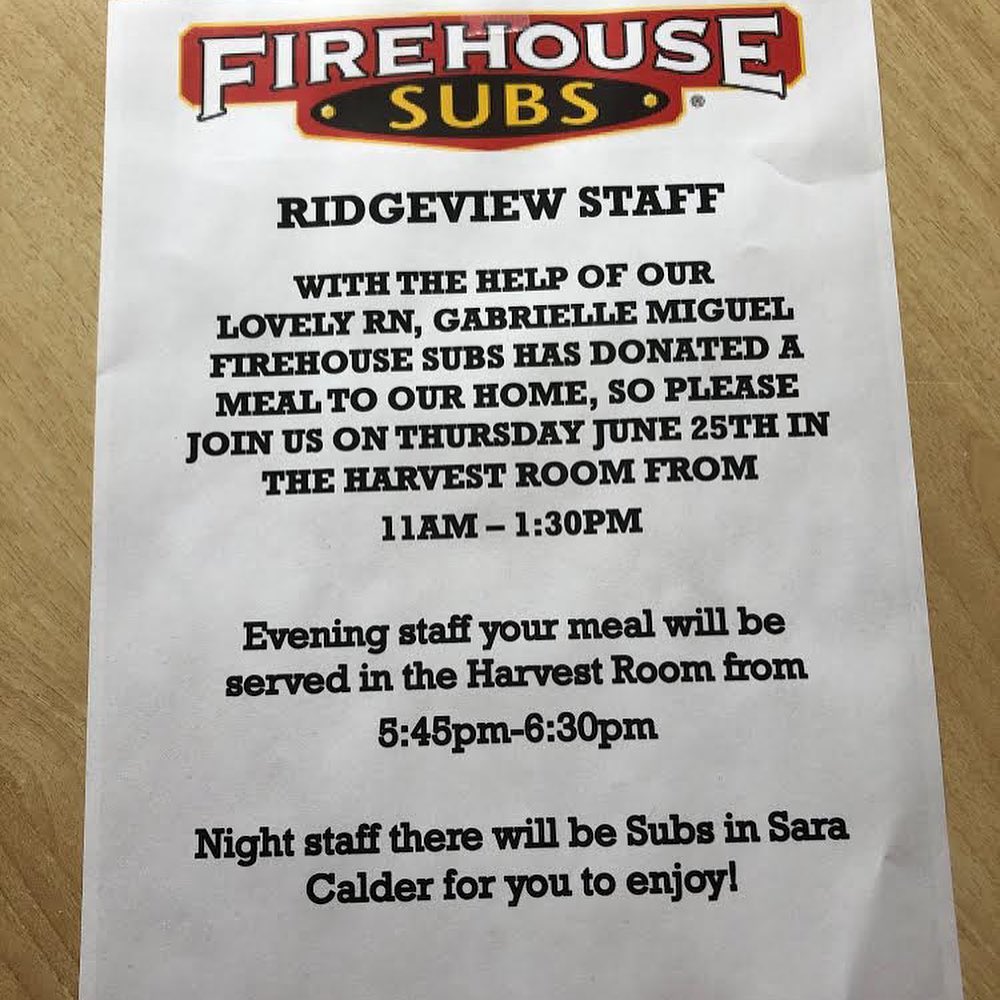 FIREHOUSE
SUBS
®
RIDGEVIEW STAFF
WITH THE HELP OF OUR
LOVELY RN, GABRIELLE MIGUEL
FIREHOUSE SUBS HAS DONATED A
MEAL TO OUR HOME, SO PLEASE
JOIN US ON THURSDAY JUNE 25TH IN
THE HARVEST ROOM FROM
11AM – 1:30PM
Evening staff your meal will be
served in the Harvest Room from
5:45pm-6:30pm
Night staff there will be Subs in Sara
Calder for you to enjoy!